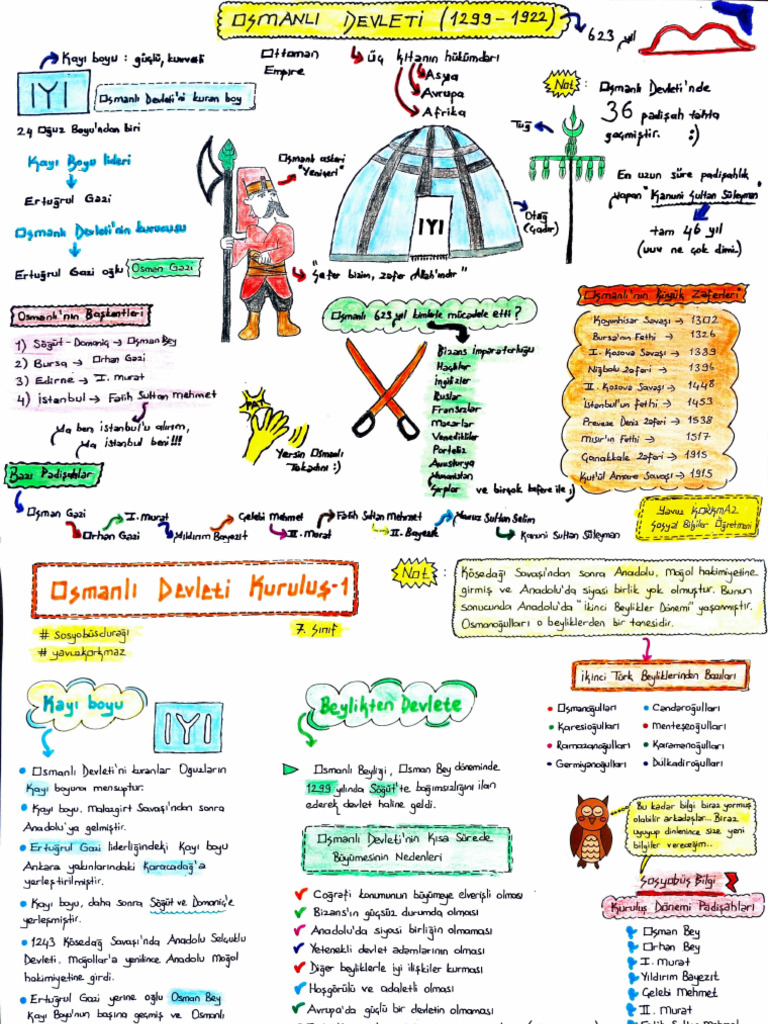 Osmanlı Devleti (1299-1922)
623 yıl
Kayı boyu : güçlü, kuvvetli
IYI
Osmanlı Devleti'ni kuran boy
24 Oğuz Boyu'ndan biri
Kayı Boyu lideri
Ertuğrul Gazi
Osmanlı Devleti'nin kurucusu
Ertuğrul Gazi oğlu Osman Gazi
Ottoman
Empire
Üç kıtanın hükümdarı
Asya
Avrupa
Afrika
Osmanlı askeri
"Yeniçeri"
IYI
Otağ
(Çadır)
"Sefer bizim, zafer Allah'ındır"
Tuğ
Not:
Osmanlı Devleti'nde
36 padişah tahta
geçmiştir. :)
En uzun süre padişahlık
yapan "Kanuni Sultan Süleyman"
tam 46 yıl
(uuv ne çok dimi.)
Osmanlı'nın Başkentleri
1) Söğüt-Domaniç → Osman Bey
2) Bursa → Orhan Gazi
3) Edirne → I. murat
4) istanbul → Fatih Sultan mehmet
Ya ben istanbul'u alırım,
Ya istanbul beni!!!
PAT
Yersin Osmanlı
Tokadını :)
Osmanlı 623 yıl kimlerle mücadele etti?
Bizans imparatorluğu
Haçlılar
ingilizler
Ruslar
Fransızlar
Macarlar
Venedikliler
Portekiz
Avusturya
Yunanistan
Sırplar ve birçok kefere ile ;)
Osmanlı'nın Büyük Zaferleri
Koyunhisar Savaşı → 1302
Bursa'nın Fethi → 1326
I. Kosova Savaşı → 1389
Niğbolu Zaferi → 1396
II. Kosova Savaşı → 1448
İstanbul'un fethi → 1453
Preveze Deniz Zaferi → 1538
Mısır'ın Fethi → 1517
Çanakkale Zaferi → 1915
Kut'ül Amare Savaşı → 1915
Bazı Padişahlar
Osman Gazi
Orhan Gazi
I. Murat
Yıldırım Bayezıt
Çelebi Mehmet
II. Murat
Fatih Sultan Mehmet
II. Bayezıt
Yavuz Sultan Selim
Kanuni Sultan Süleyman
Yavuz KORKMAZ
Sosyal Bilgiler Öğretmeni
Osmanlı Devleti Kuruluş-1
# sosyobüsdurağı
# yavuzkorkmaz
7. Sınıf
Not:
Kösedağı Savaşı'ndan sonra Anadolu, Moğol hakimiyetine
girmiş ve Anadolu'da siyasi birlik yok olmuştur. Bunun
sonucunda Anadolu'da "ikinci Beylikler Dönemi" yaşanmıştır.
Osmanoğulları o beyliklerden bir tanesidir.
ikinci Türk Beyliklerinden Bazıları
Osmanoğulları
Karesioğulları
Ramazanoğulları
Germiyanoğulları
Candaroğulları
Menteşeoğulları
Karamanoğulları
Dulkadiroğulları
Kayı boyu
IYI
Osmanlı Devleti'ni kuranlar Oğuzların
Kayı boyuna mensuptur.
Kayı boyu, malazgirt Savaşı'ndan sonra
Anadolu'ya gelmiştir.
Ertuğrul Gazi liderliğindeki Kayı boyu
Ankara yakınlarındaki Karacadağ'a
yerleştirilmiştir.
Kayı boyu, daha sonra Söğüt ve Domaniç'e
yerleşmiştir.
1243 Kösedağ Savaşı'nda Anadolu Selçuklu
Devleti, Moğollar'a yenilince Anadolu Moğol
hakimiyetine girdi.
Ertuğrul Gazi yerine oğlu Osman Bey
Kayı Boyu'nun başına geçmiş ve Osmanlı
Beylikten Devlete
Osmanlı Beyliği, Osman Bey döneminde
1299 yılında Söğüt'te bağımsızlığını ilan
ederek devlet haline geldi.
Osmanlı Devleti'nin Kısa Sürede
Büyümesinin Nedenleri
Coğrafi konumunun büyümeye elverişli olması
Bizans'ın güçsüz durumda olması
Anadolu'da siyasi birliğin olmaması
Yetenekli devlet adamlarının olması
Diğer beyliklerle iyi ilişkiler kurması
Hoşgörülü ve adaletli olması
Avrupa'da güçlü bir devletin olmaması
Bu kadar bilgi biraz yormuş
olabilir arkadaşlar... Biraz
uyuyup dinlenince size yeni
bilgiler vereceğim..
Sosyobüs Bilgi
Kuruluş Dönemi Padişahları
Osman Bey
Orhan Bey
I. Murat
Yıldırım Bayezıt
Çelebi Mehmet
II. Murat